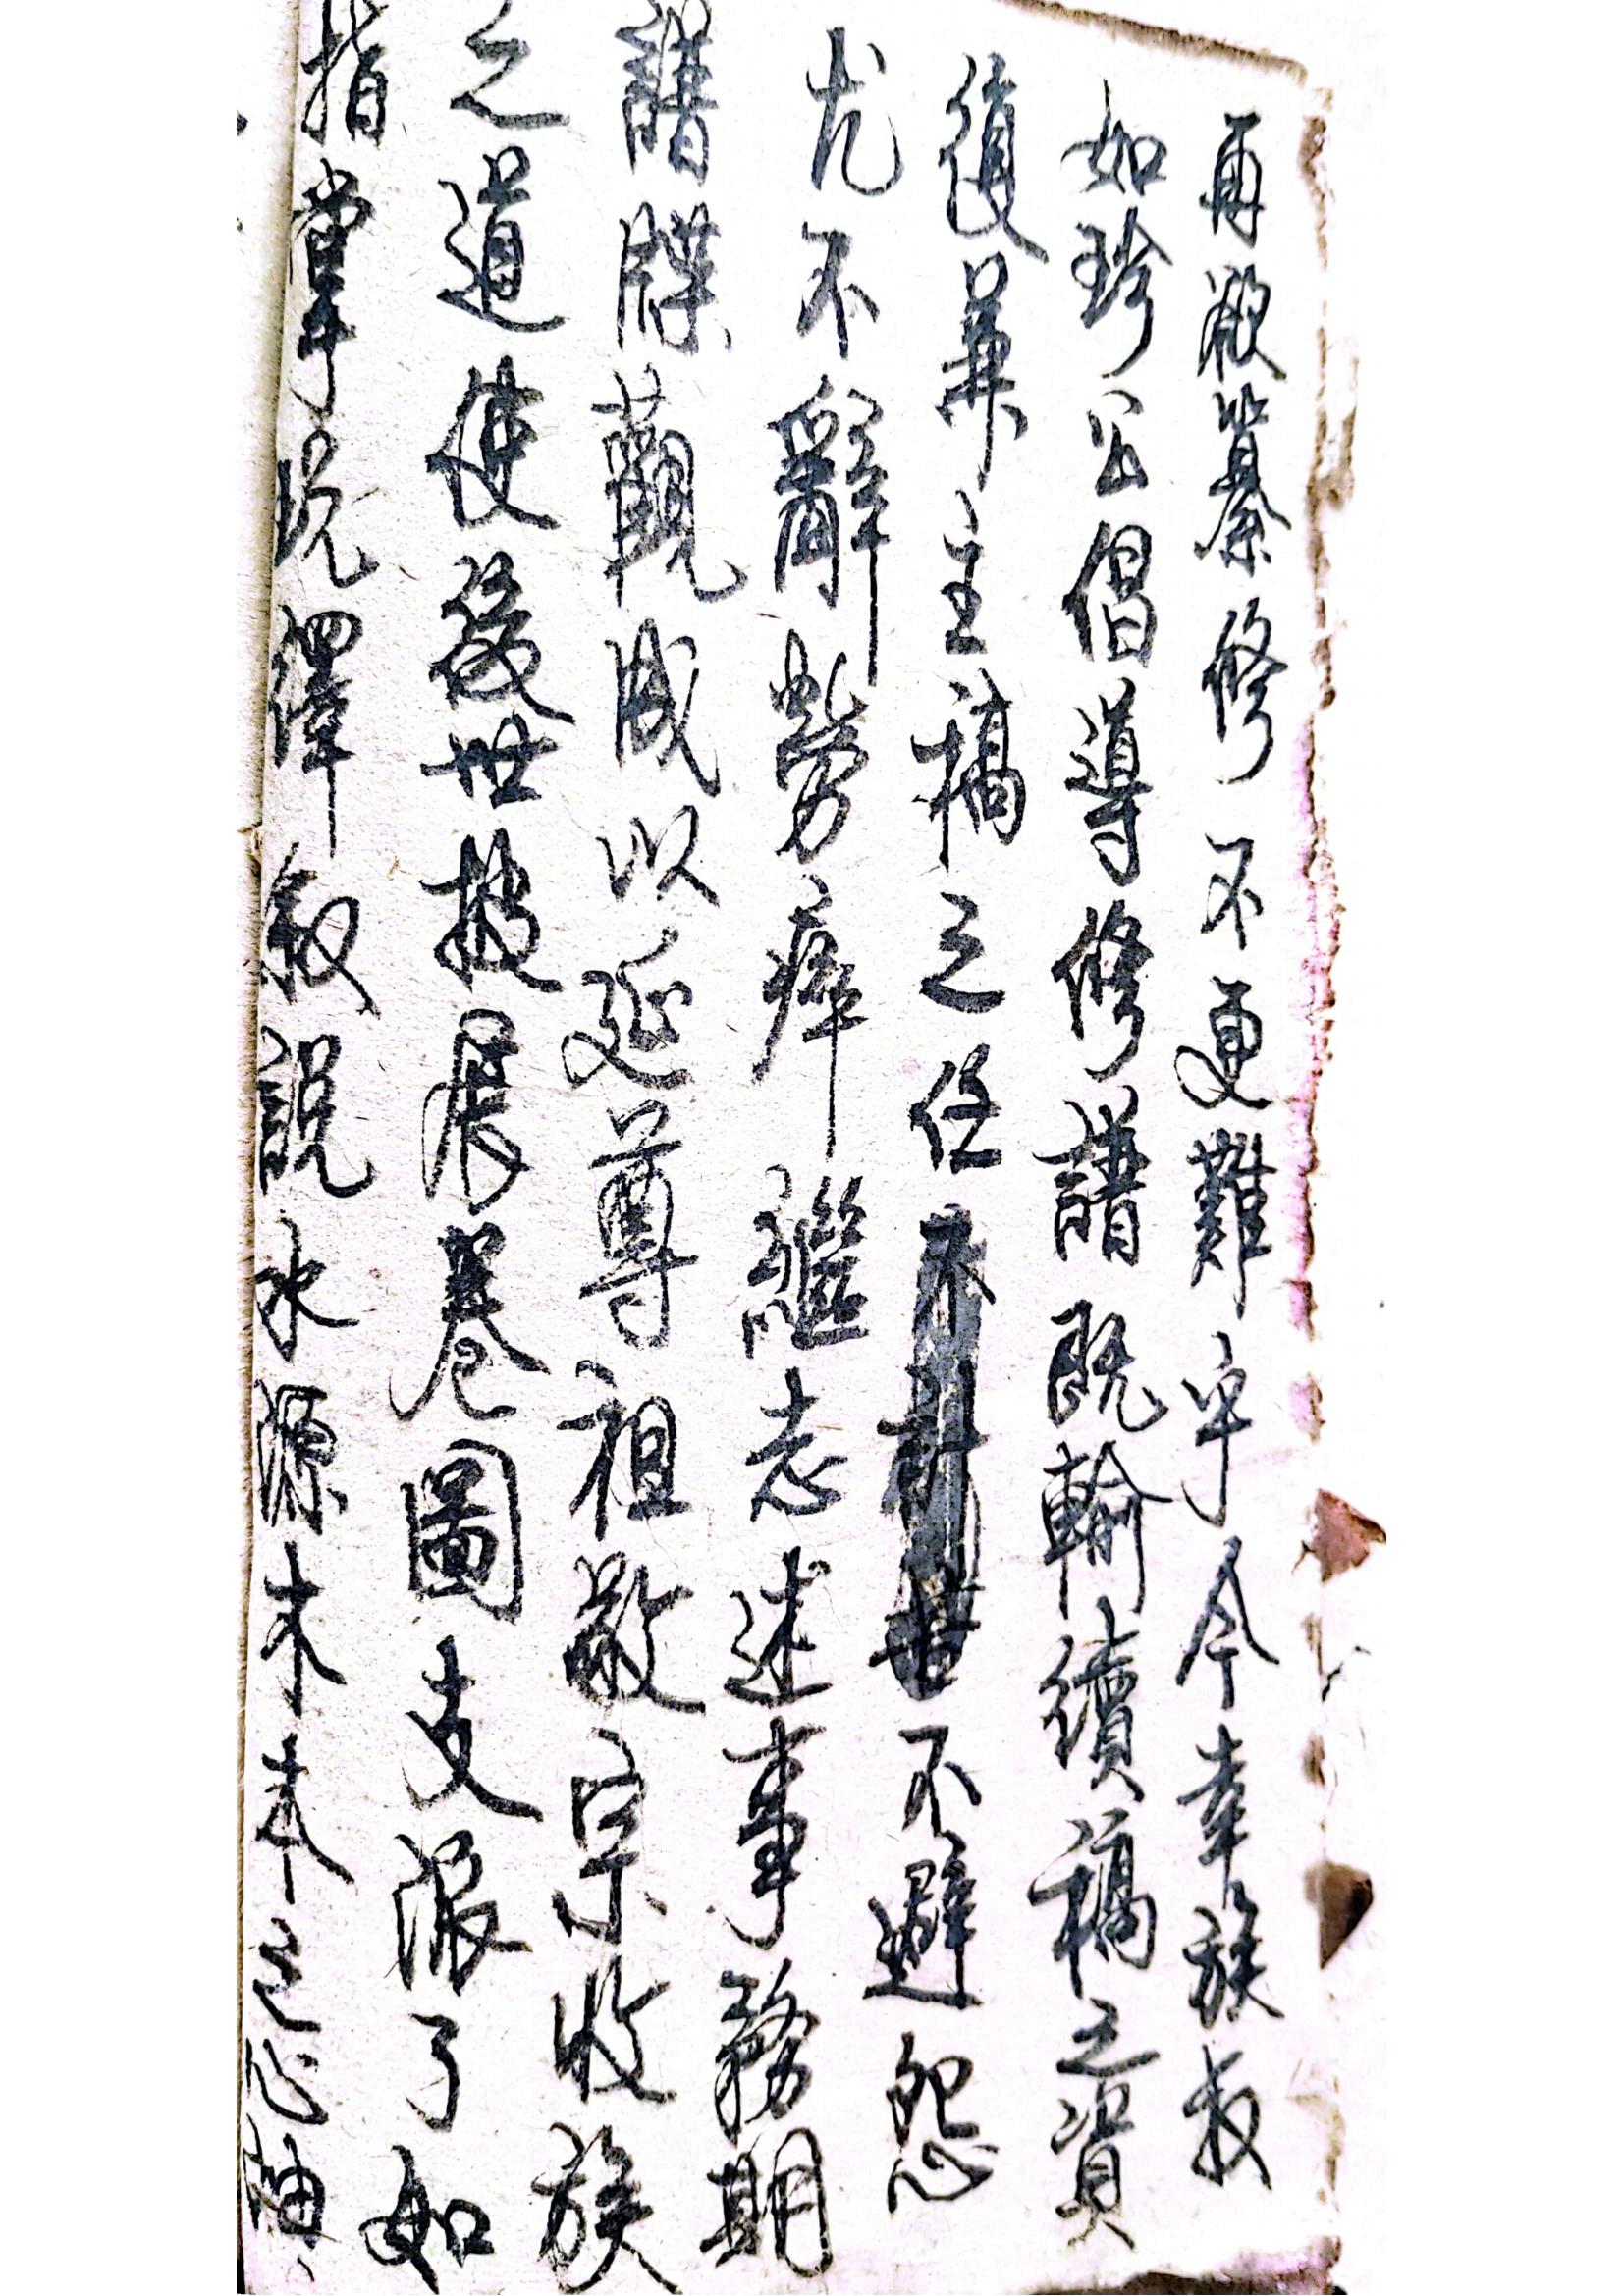 再欲纂修不更難乎今幸族叔
如珍公倡導修譜既輸續稿之資
復兼主稿之任不避怨
尤不辭勞瘁繼志述事務期
譜牒觀成以延尊祖敬宗收族
之道使後世披展卷圖支派了如
指掌玩繹敘説水源木本之心油